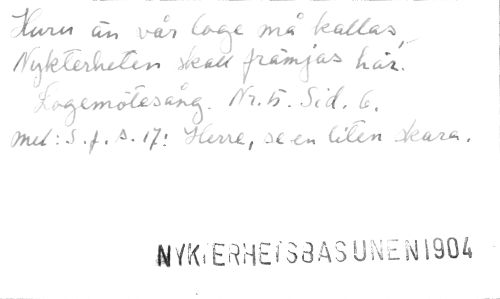 Huru än vår loge må kallas,
Nykterheten skall främjas här.
Logemötesång. Nr. 5. Sid. 6.
mel: S. f. s. 17: Herre, se en liten skara.
NYKTERHETSBASUNEN 1904